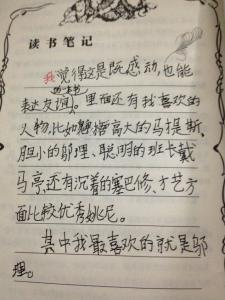 读书笔记
我觉得这是既感动,也能
一本书
表达友谊。里面还有我喜欢的
人物,比如髙大的马提斯、
胆小的邬理、聪明的班长戴
马亭,还有沉着的塞巴修、才艺方
面比较优秀姚尼。
其中我最喜欢的就是邬
理。